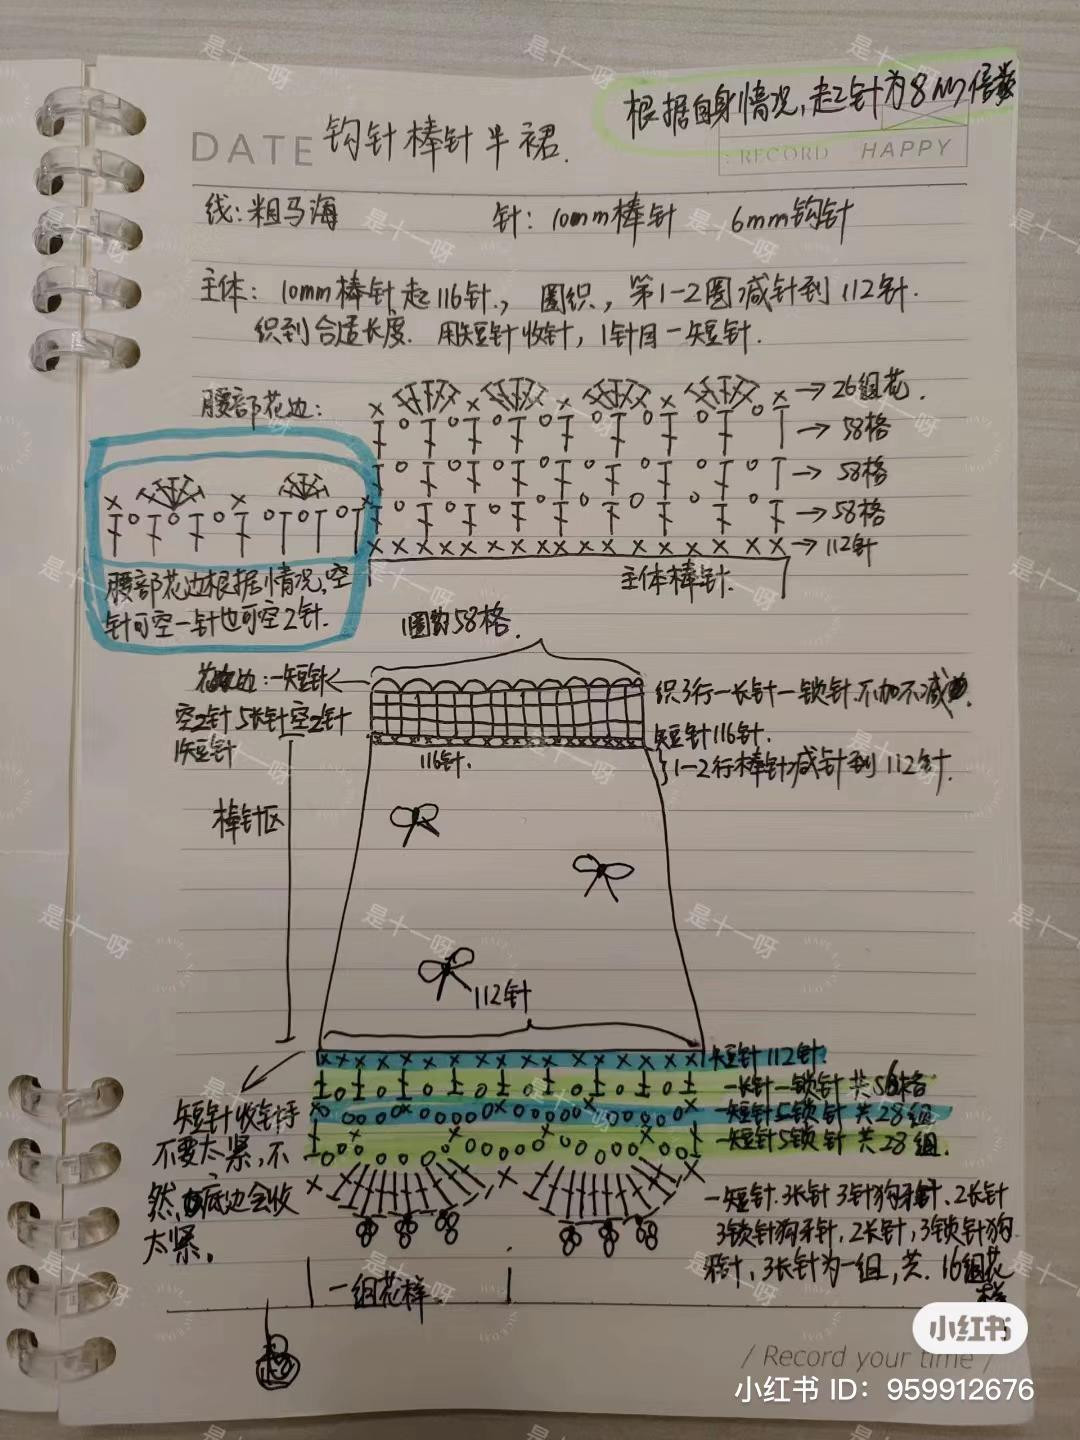 根据自身情况,起针为8的倍数
DATE 钩针棒针半裙.
RECORD HAPPY
线:粗马海 针: 10mm棒针 6mm钩针
主体: 10mm棒针起116针., 圈织, 第1-2圈减针到112针.
织到合适长度. 用短针收针, 1针目一短针.
腰部花边:
→26组花.
→58格
→58格
→58格
→112针
主体棒针.
腰部花边根据情况,空
针可空一针也可空2针.
1圈约58格.
花边:一短针
空2针5长针空2针
1短针
织3行一长针一锁针.不加不减.
短针116针.
116针.
1-2行棒针减针到112针.
棒针区
112针
短针112针.
一长针一锁针 共56格
一短针5锁针 共28组
一短针5锁针 共28组.
短针收针时
不要太紧,不
然,底边会收
太紧.
一短针.3长针3针狗牙针.2长针
3锁针狗牙针,2长针,3锁针狗
牙针,3长针为一组,共.16组花
样
一组花样.
起
小红书
/ Record your time /
小红书 ID: 959912676
是十一呀